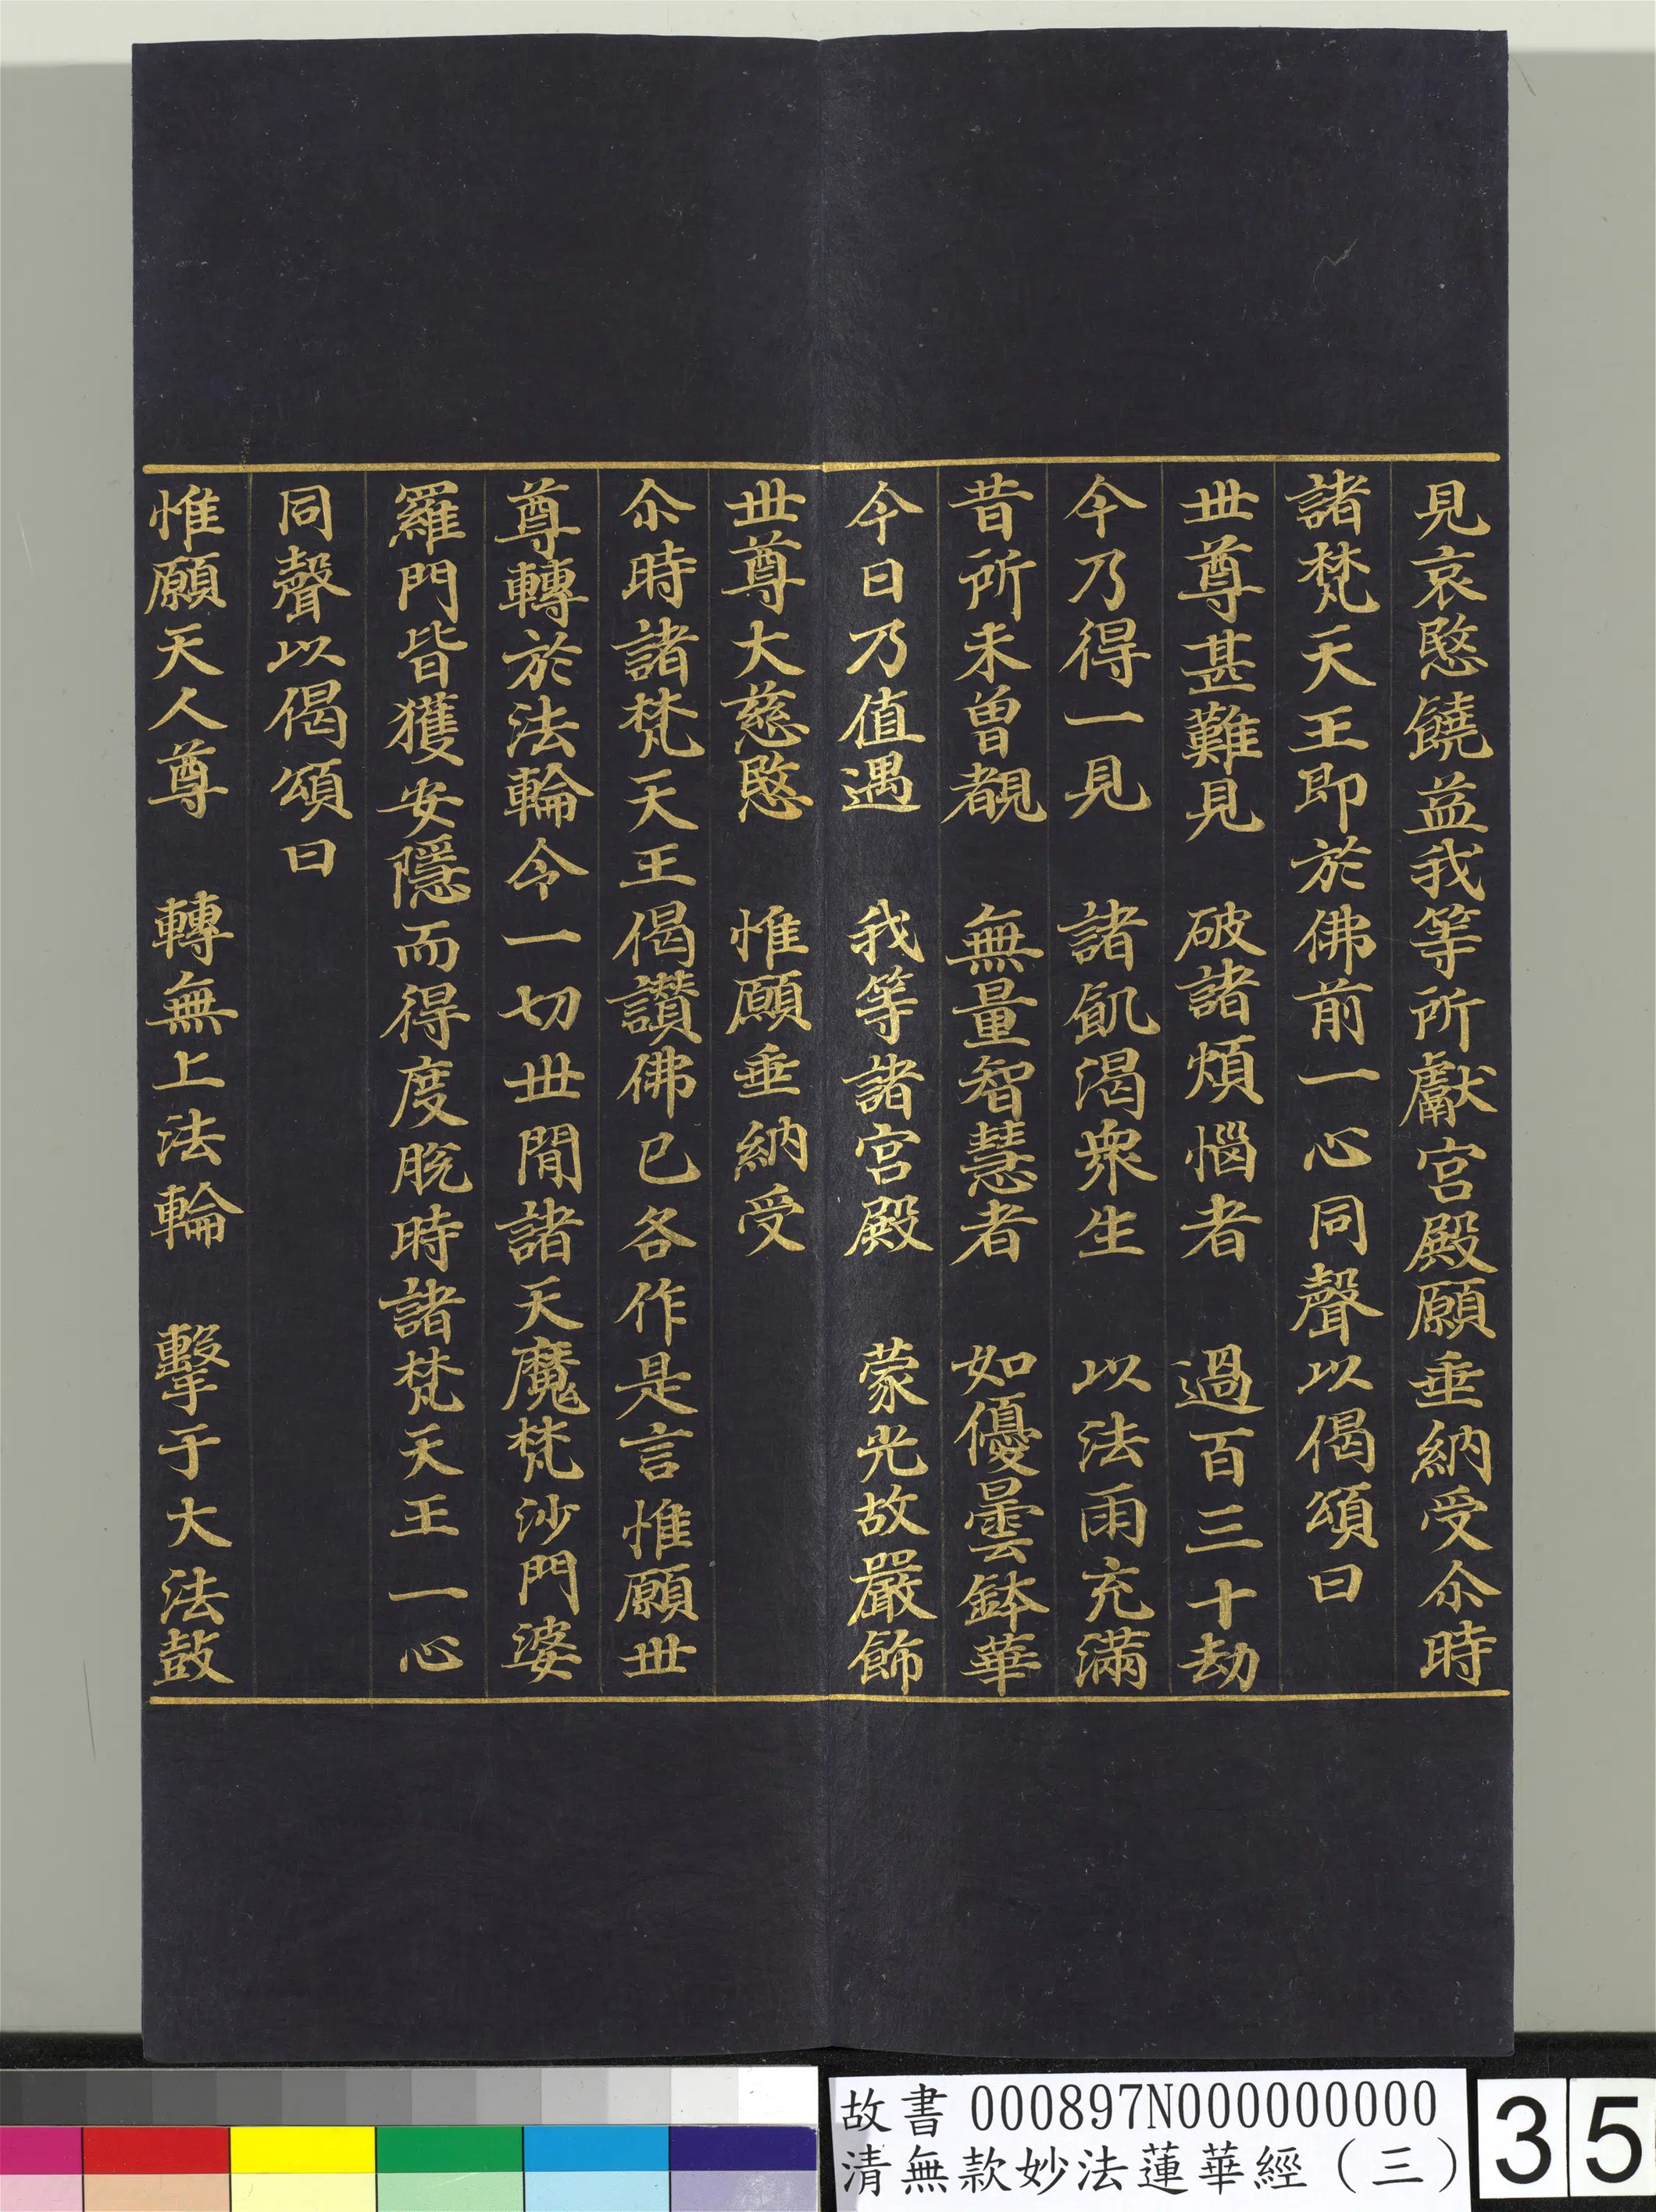 見哀愍饒益我等所獻宮殿願垂納受尒時
諸梵天王即於佛前一心同聲以偈頌曰
世尊甚難見　破諸煩惱者　過百三十劫
今乃得一見　諸飢渴眾生　以法雨充滿
昔所未曾覩　無量智慧者　如優曇鉢華
今日乃值遇　我等諸宮殿　蒙光故嚴飾
世尊大慈愍　惟願垂納受
尒時諸梵天王偈讚佛已各作是言惟願世
尊轉於法輪令一切世間諸天魔梵沙門婆
羅門皆獲安隱而得度脫時諸梵天王一心
同聲以偈頌曰
惟願天人尊　轉無上法輪　擊于大法鼓
故書 000897N000000000
清無款妙法蓮華經（三）
35